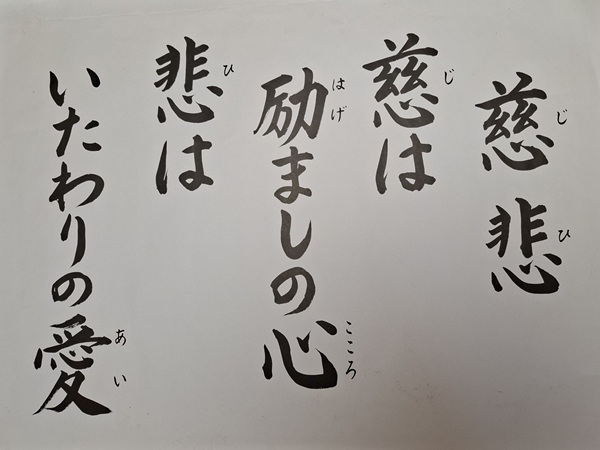 慈悲
じひ
慈は
じ
励ましの心
はげ こころ
悲は
ひ
いたわりの愛
あい